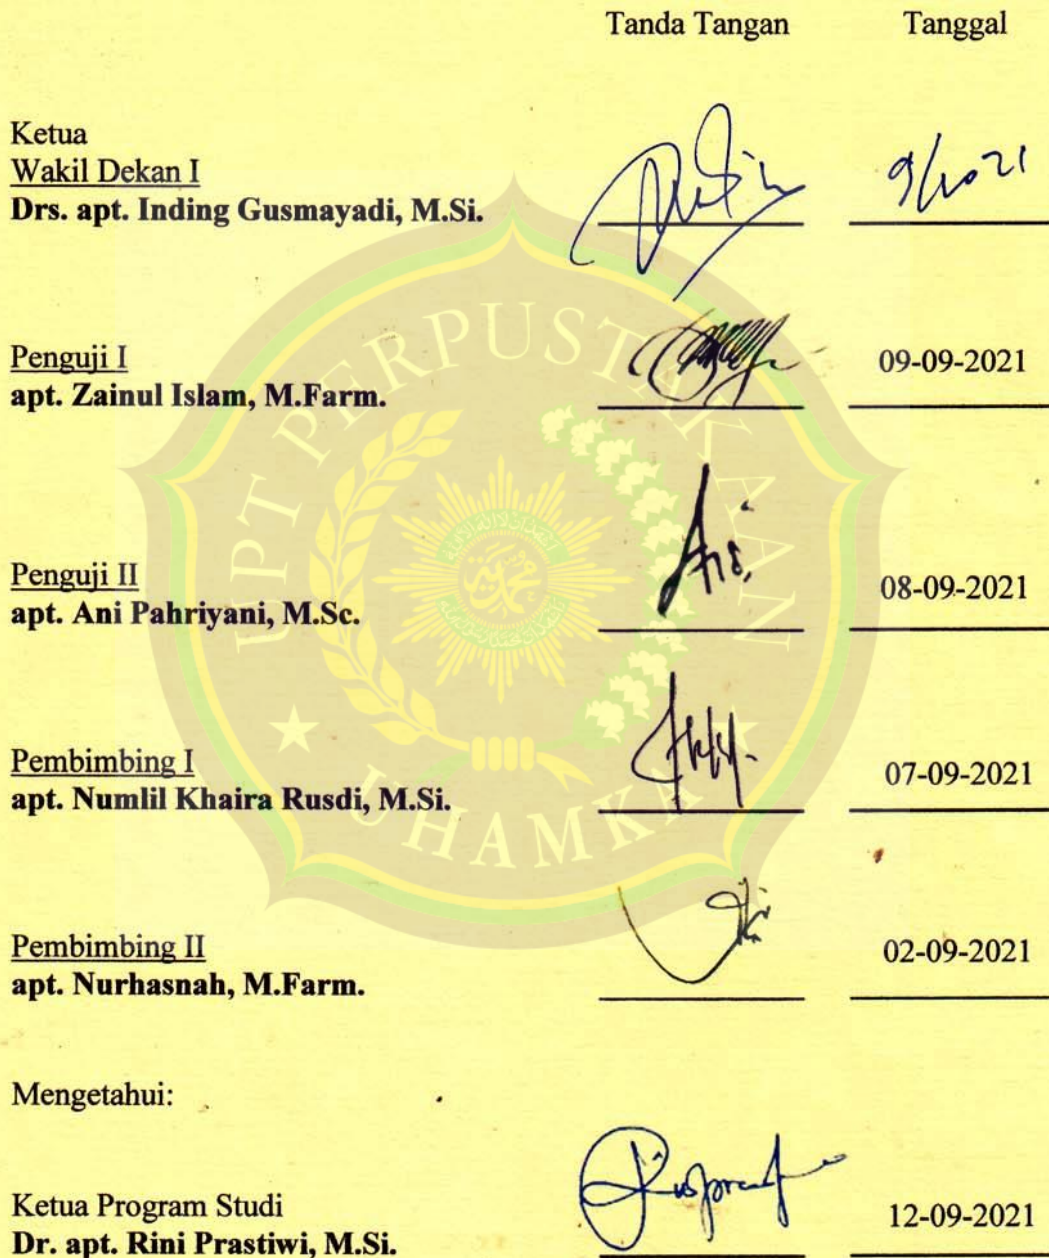 Tanda Tangan Tanggal
Ketua
Wakil Dekan I
Drs. apt. Inding Gusmayadi, M.Si.
9/10 21
Penguji I
apt. Zainul Islam, M.Farm.
09-09-2021
Penguji II
apt. Ani Pahriyani, M.Sc.
08-09-2021
Pembimbing I
apt. Numlil Khaira Rusdi, M.Si.
07-09-2021
Pembimbing II
apt. Nurhasnah, M.Farm.
02-09-2021
Mengetahui:
Ketua Program Studi
Dr. apt. Rini Prastiwi, M.Si.
12-09-2021
UPT PERPUSTAKAAN
UHAMKA